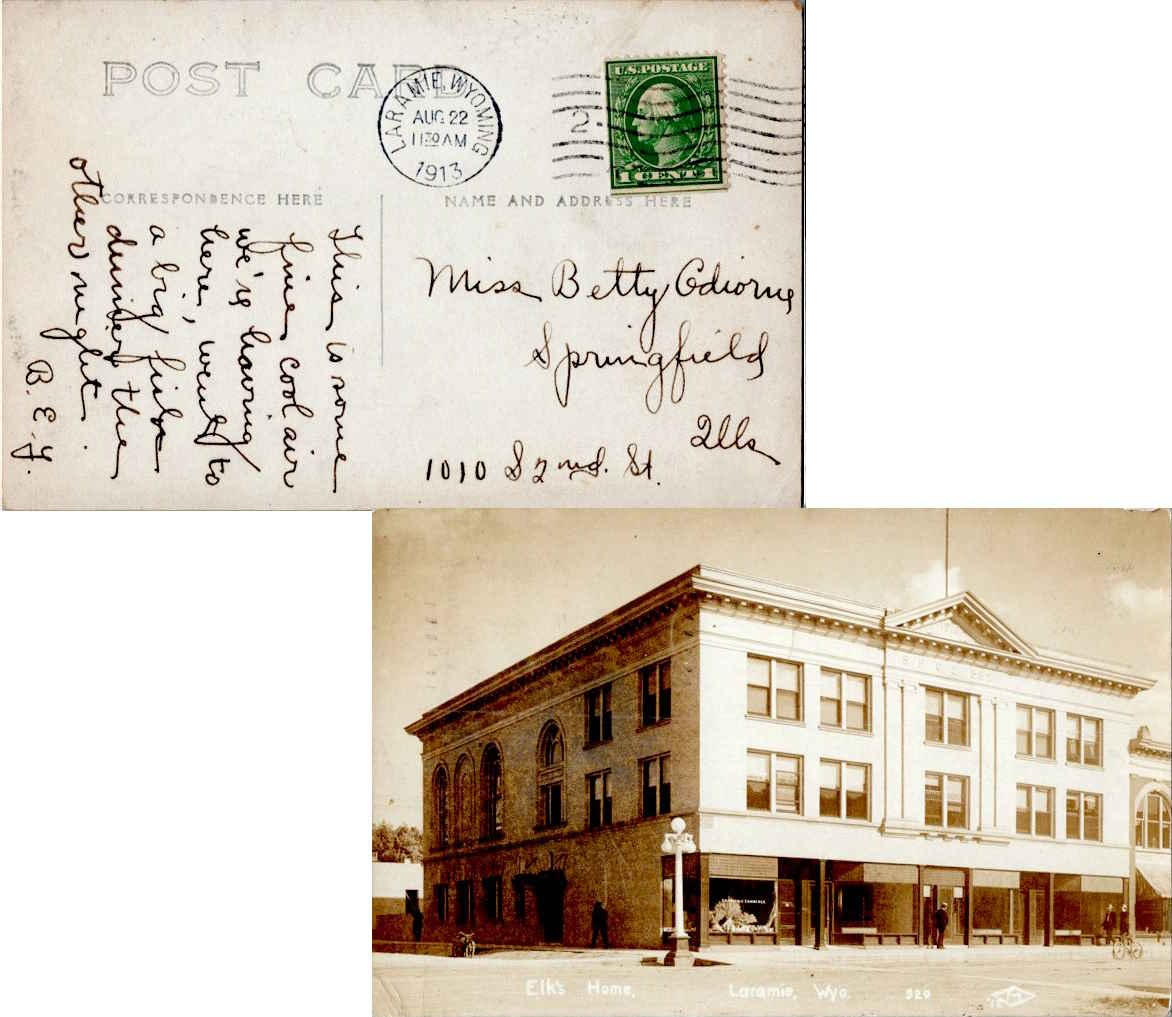 POST CARD
LARAMIE, WYOMING
AUG 22
11 30 AM
1913
2
U.S. POSTAGE
1 CENT 1
CORRESPONDENCE HERE
NAME AND ADDRESS HERE
This is some
fine cool air
we're having
here, went to
a big fish
dinner the
other night.
B. E. Y.
Miss Betty Odiorne
Springfield
Ills
1010 S 2nd. St.
B.P.O.E.
Elk's Home,
Laramie, Wyo.
920